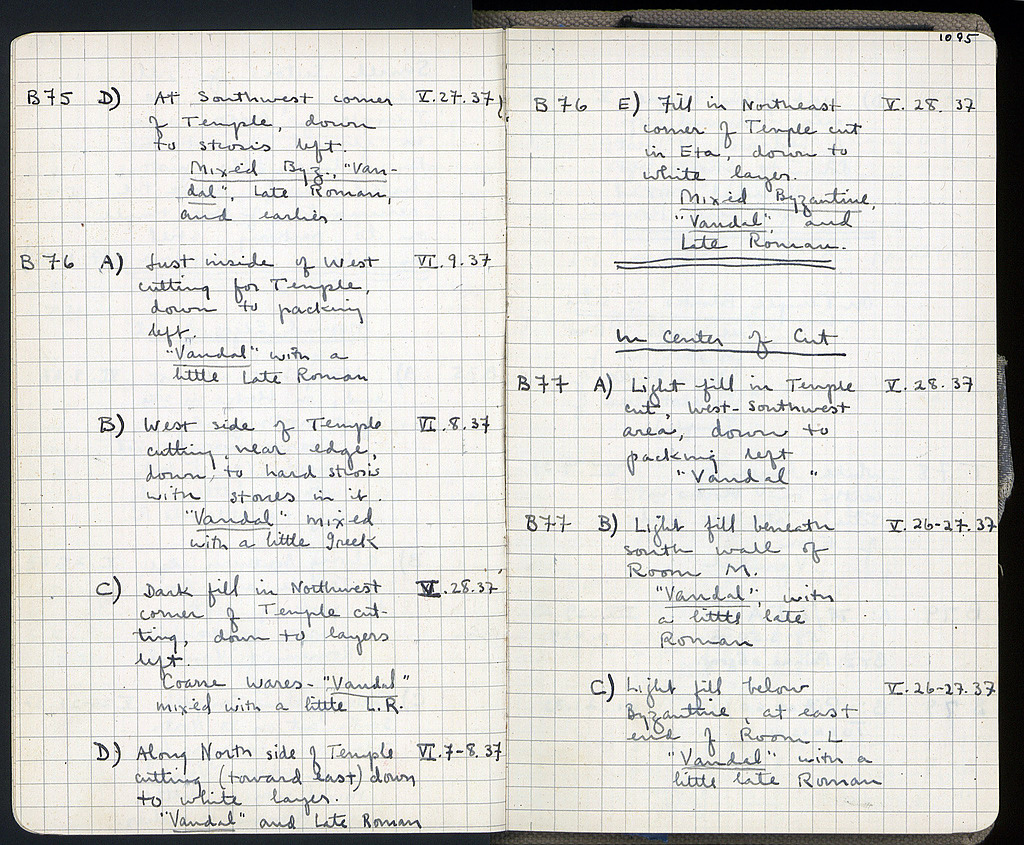 B75 D) At Southwest corner V.27.37
of Temple, down
to strosis left.
Mixed Byz., "Van-
dal", Late Roman,
and earlier.
B76 A) Just inside of West VI.9.37
cutting for Temple,
down to packing
left.
"Vandal" with a
little Late Roman
B) West side of Temple VI.8.37
cutting, near edge,
down to hard strosis
with stones in it.
"Vandal" mixed
with a little Greek
C) Dark fill in Northwest V.28.37
corner of Temple cut-
ting, down to layers
left.
Coarse wares - "Vandal"
mixed with a little L.R.
D) Along North side of Temple VI.7-8.37
cutting (toward east) down
to white layer.
"Vandal" and Late Roman
1095
B76 E) Fill in Northeast V.28.37
corner of Temple cut
in Eta, down to
white layer.
Mixed Byzantine,
"Vandal", and
Late Roman.
In Center of Cut
B77 A) Light fill in Temple V.28.37
cut, West-Southwest
area, down to
packing left
"Vandal"
B77 B) Light fill beneath V.26-27.37
south wall of
Room M.
"Vandal", with
a little late
Roman
C) Light fill below V.26-27.37
Byzantine, at east
end of Room L
"Vandal" with a
little late Roman